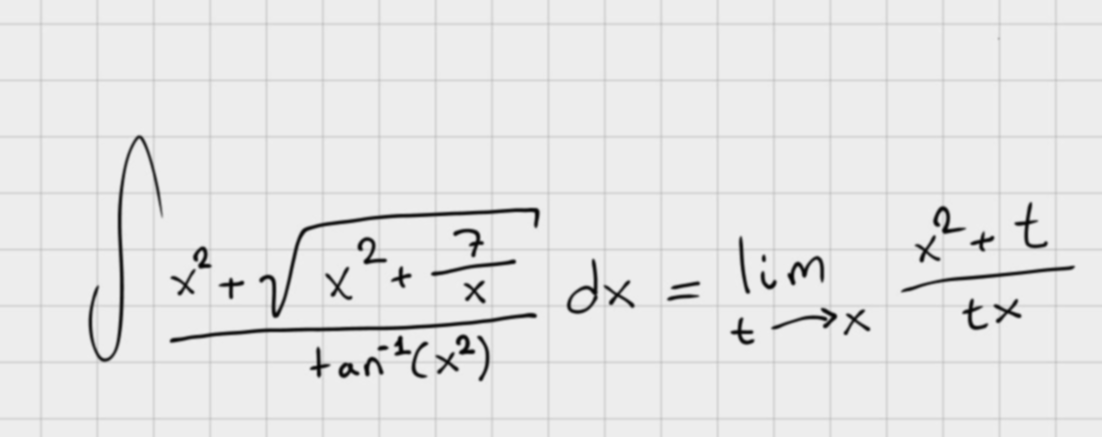 \int \frac{x^2 + \sqrt{x^2 + \frac{7}{x}}}{\tan^{-1}(x^2)} dx = \lim_{t \to x} \frac{x^2 + t}{tx}